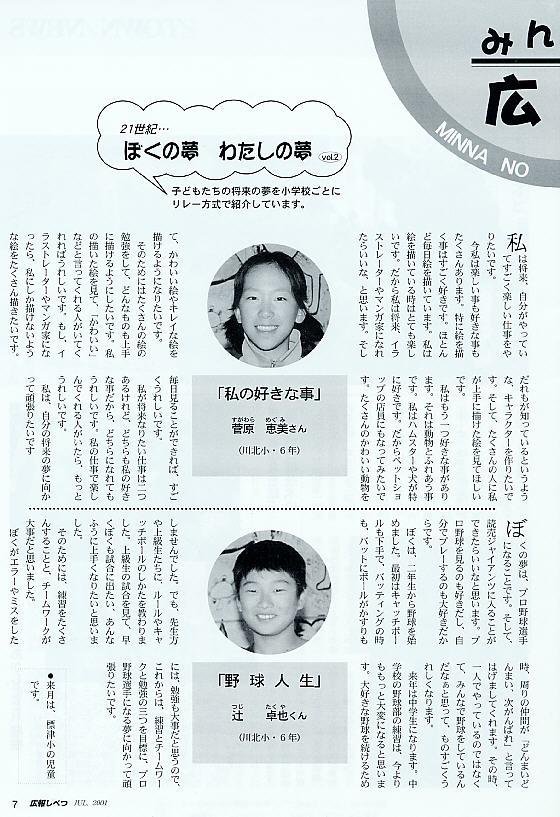 みん
広
MINNA NO
21世紀…
ぼくの夢　わたしの夢 vol.2
子どもたちの将来の夢を小学校ごとに
リレー方式で紹介しています。
私は将来、自分がやってい
てすごく楽しい仕事をや
りたいです。
今私は楽しい事も好きな事も
たくさんあります。特に絵を描
く事はすごく好きです。ほとん
ど毎日絵を描いています。私は
絵を描いている時はとても楽し
いです。だから私は将来、イラ
ストレーターやマンガ家になれ
たらいいな、と思います。そし
て、かわいい絵やキレイな絵を
描けるようになりたいです。
そのためにはたくさんの絵の
勉強をして、どんなものも上手
に描けるようにしたいです。私
の描いた絵を見て、「かわいい」
などと言ってくれる人がいてく
れればうれしいです。もし、イ
ラストレーターやマンガ家にな
ったら、私にしか描けないよう
な絵をたくさん描きたいです。
だれもが知っているというよう
な、キャラクターを作りたいで
す。そして、たくさんの人に私
が上手に描けた絵を見てほしい
です。
私はもう一つ好きな事があり
ます。それは動物とふれあう事
です。私はハムスターや犬が特
に好きです。だからペットショ
ップの店員にもなってみたいで
す。たくさんのかわいい動物を
毎日見ることができれば、すご
くうれしいです。
私が将来なりたい仕事は二つ
あるけれど、どちらも私の好き
な事だから、どちらになれても
うれしいです。私の仕事で楽し
んでくれる人がいたら、もっと
うれしいです。
私は、自分の将来の夢に向か
って頑張りたいです
「私の好きな事」
すがわら　めぐみ
菅原　恵美さん
(川北小・6年)
ぼくの夢は、プロ野球選手
になることです。そして、
読売ジャイアンツに入ることが
できたらいいなと思います。プ
ロ野球を見るのも好きだし、自
分でプレーするのも大好きだか
らです。
ぼくは、二年生から野球を始
めました。最初はキャッチボー
ルも下手で、バッティングの時
も、バットにボールがかすりも
しませんでした。でも、先生方
や上級生たちに、ルールやキャ
ッチボールのしかたを教わりま
した。上級生の試合を見て、早
くぼくも試合に出たい、あんな
ふうに上手くなりたいと思いま
した。
そのためには、練習をたくさ
んすることと、チームワークが
大事だと思いました。
ぼくがエラーやミスをした
時、周りの仲間が「どんまいど
んまい、次がんばれ」と言って
はげましてくれます。その時、
一人でやっているのではなく
て、みんなで野球をしているん
だなぁと思って、ものすごくう
れしくなります。
来年は中学生になります。中
学校の野球部の練習は、今より
ももっと大変になると思いま
す。大好きな野球を続けるため
には、勉強も大事だと思うので、
これからは、練習とチームワー
クと勉強の三つを目標に、プロ
野球選手になる夢に向かって頑
張りたいです。
「野球人生」
つじ　たくや
辻　卓也くん
(川北小・6年)
●来月は、標津小の児童
です。
7 広報しべつ JUL. 2001